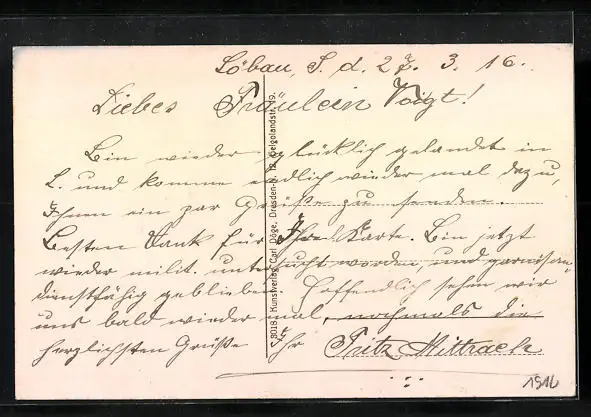 Löbau, S. d. 27. 3. 16.
Liebes Fräulein Voigt!
Bin wieder glücklich gelandet in
L. und komme endlich wieder mal dazu,
Ihnen ein par Grüße zu senden.
Besten Dank für Ihre Karte. Bin jetzt
wieder milit. untersucht worden, und garnison-
dienstfähig geblieben. Hoffendlich sehen wir
uns bald wieder mal, nochmals die
herzlichsten Grüße Ihr Fritz Mittrach
8018 Kunstverlag Carl Döge, Dresden-N. 12, Helgolandstr. 19.
1916